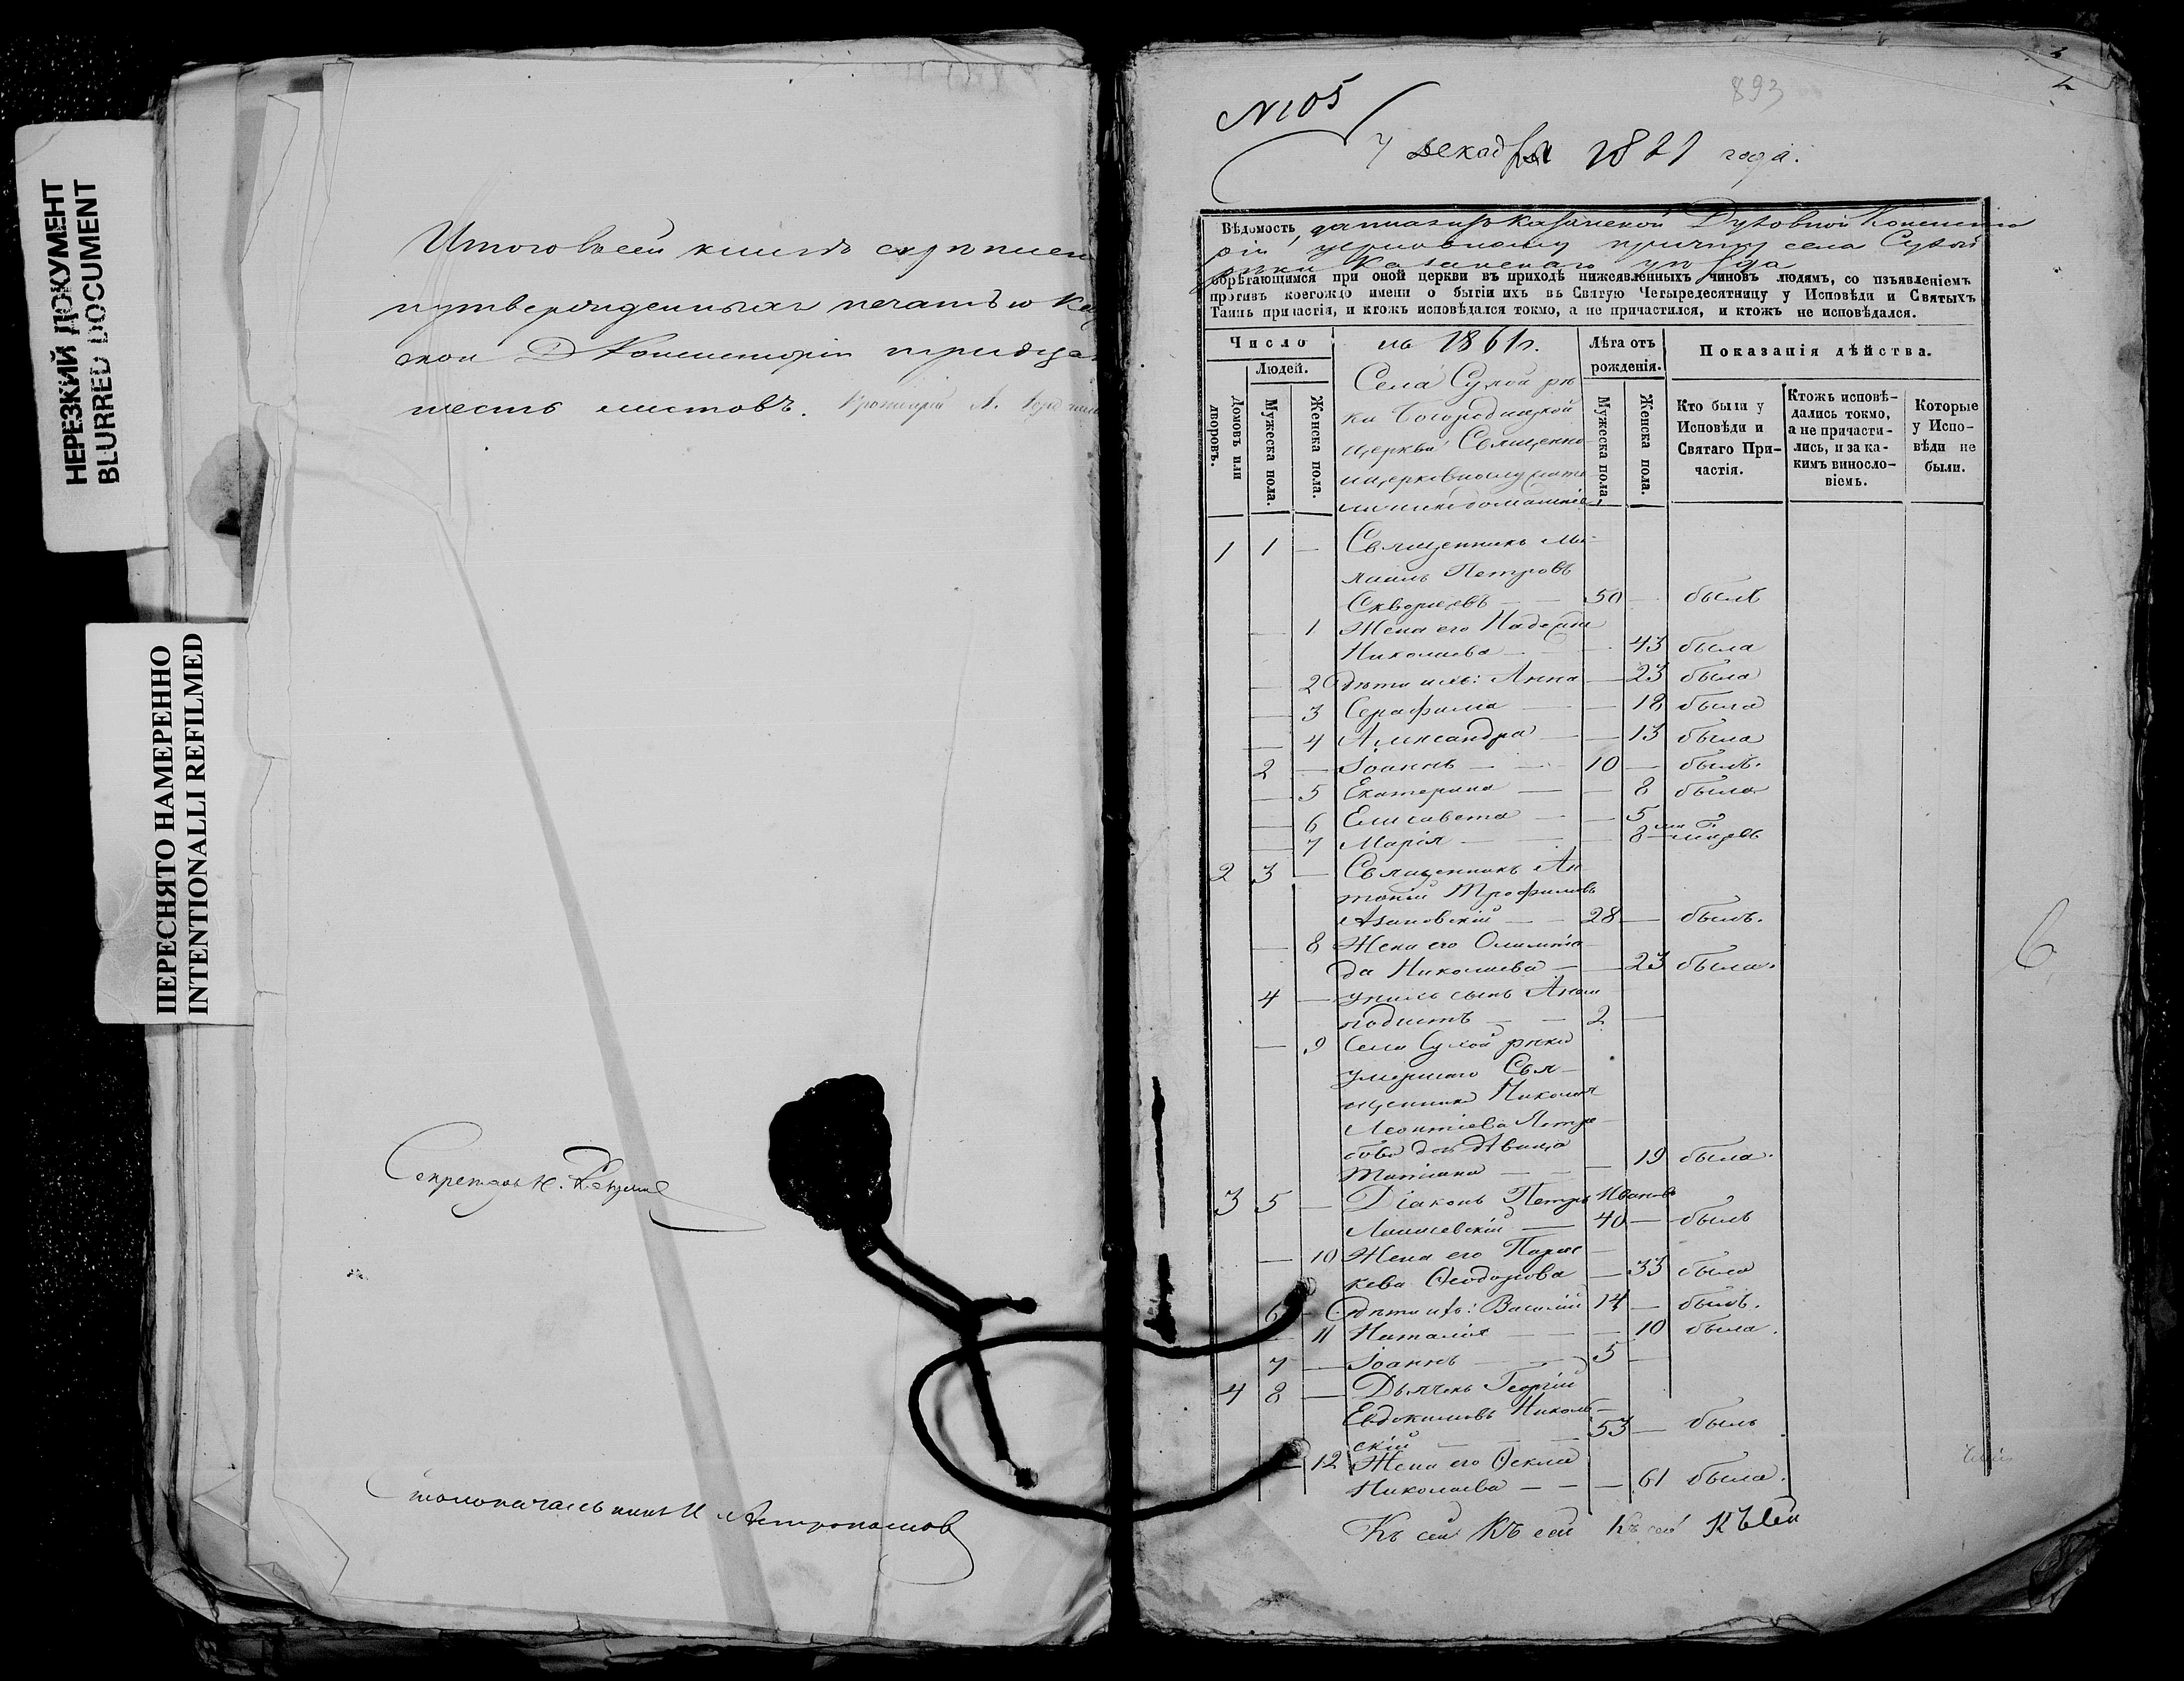 НЕРЕЗКИЙ ДОКУМЕНТ
BLURRED DOCUMENT
ПЕРЕСНЯТО НАМЕРЕННО
INTENTIONALLI REFILMED
Итого в сей книгѣ скрѣплен
и утвержденныхъ печатью Ка
ской Д Консисторіи тридца
шесть листовъ.
Секретарь
Столоначальникъ И
893
№ 105
7 Декабря 1861 года.
Вѣдомость, данная изъ Казанской Духовной Консисто
ріи церковному причту села Сухой
рѣки Казанскаго уѣзда
обрѣтающимся при оной церкви въ приходѣ нижеявленныхъ чиновъ людямъ, со изъявленіемъ
противъ коегождо имени о бытіи ихъ въ Святую Четыредесятницу у Исповѣди и Святыхъ
Таинъ причастія, и ктожъ исповѣдался токмо, а не причастился, и ктожъ не исповѣдался.
Число
Людей.
Домовъ или дворовъ.
Мужеска пола.
Женска пола.
на 1861 г.
Села Сухой рѣ
ки Богородицкой
церкви Священно
и церковнослужите
ли и ихъ домашніе
Лѣта отъ рожденія.
Мужеска пола.
Женска пола.
Показанія дѣйства.
Кто были у Исповѣди и Святаго При-частія.
Ктожъ исповѣ-дались токмо, а не причасти-лись, и за ка-кимъ виносло-віемъ.
Которые у Испо-вѣди не были.
1 1 — Священникъ Ми
хаилъ Петровъ
Скворцевъ — 50 — былъ
— 1 Жена его Надежда
Николаева — 43 была
— 2 Дѣти ихъ: Анна — 23 была
— 3 Серафима — — 18 была
— 4 Александра — — 13 была
2 — Іоаннъ — — 10 — былъ.
— 5 Екатерина — — 8 была
— 6 Елисавета — — 5
— 7 Марія — — 8
2 3 — Священникъ Ан
тоній Трофимовъ
Азановскій — 28 — былъ.
— 8 Жена его Олимпіа
да Николаева — — 23 была.
4 — у нихъ сынъ
— — 2 —
— 9 Села Сухой рѣки
умершаго Свя
щенника Николая
Леонтіева
дѣвица
Татіана — — — 19 была.
3 5 — Діаконъ Петръ Ивановъ
— 40 — былъ
— 10 Жена его Парас
кева Ѳеодорова — 33 была
6 — Дѣти ихъ: Василій 14 — былъ.
— 11 Наталія — — — 10 была.
7 — Іоаннъ — — 5 —
4 8 — Дьячекъ Георгій
Евдокимовъ Николь
скій — — 53 — былъ
— 12 Жена его Ѳекла
Николаева — — — 61 была.
Къ сей Къ сей Къ сей Къ сей